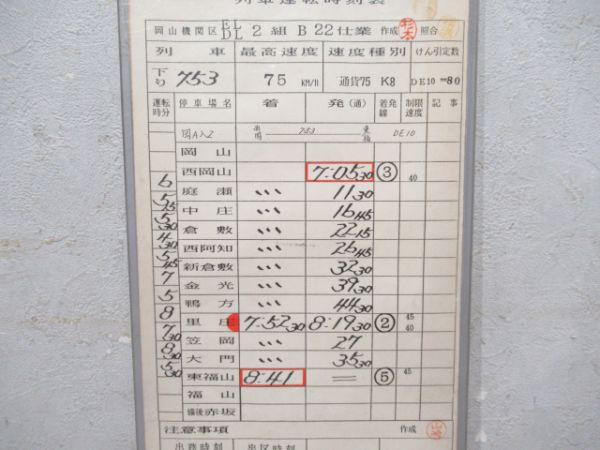 列車運転時刻表
岡山機関区 EL DL 2組 B 22仕業 作成 杉本 照合
列車 最高速度 速度種別 けん引定数
下り 753 75 KM/H 通貨75 K8 DE10 80
運転時分 停車場名 着 発(通) 着発線 制限速度 記事
753 DE10
岡山
西岡山 7:05 30 ③ 40
6 庭瀬 〃 11 30
5 15 中庄 〃 16 45
5 30 倉敷 〃 22 15
4 30 西阿知 〃 26 45
5 45 新倉敷 〃 32 30
7 金光 〃 39 30
5 鴨方 〃 44 30
8 里庄 7:52 30 8:19 30 ② 45 40
7 30 笠岡 〃 27
8 30 大門 〃 35 30
5 30 東福山 8:41 = ⑤ 45
福山
備後赤坂
注意事項 作成
出務時刻 出区時刻